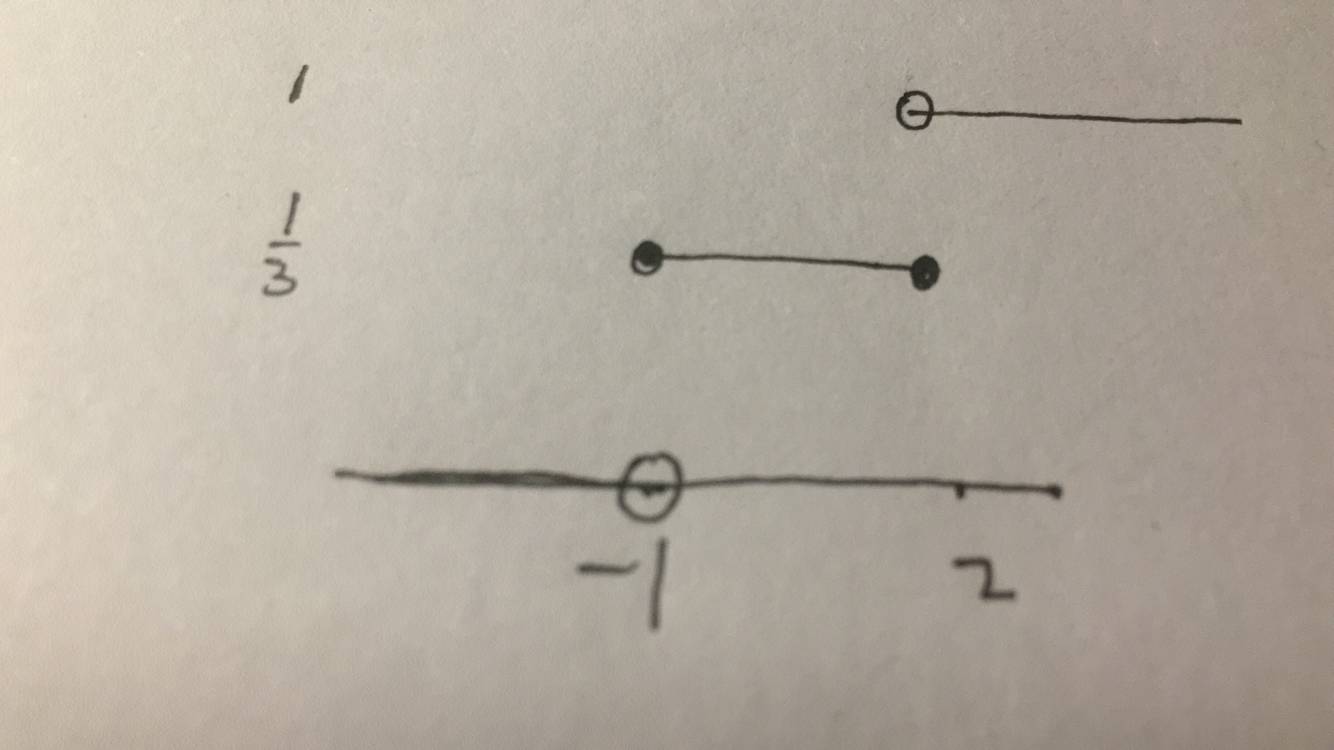 1
1/3
-1 2